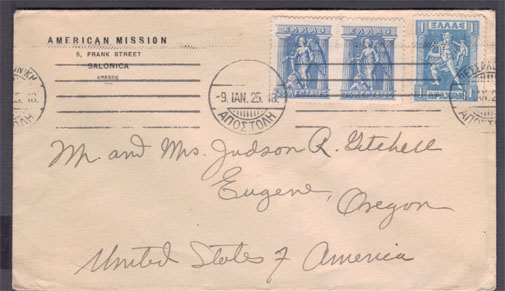 AMERICAN MISSION
5, FRANK STREET
SALONICA
GREECE
ΕΛΛΑΣ
ΕΛΛΑΣ
ΕΛΛΑΣ
1 ΔΡΑΧΜΗ 1
-9. ΙΑΝ. 25. 18
ΑΠΟΣΤΟΛΗ
ΑΠΟΣΤΟΛΗ
Mr. and Mrs. Judson R. Gitchell
Eugene, Oregon
United States of America